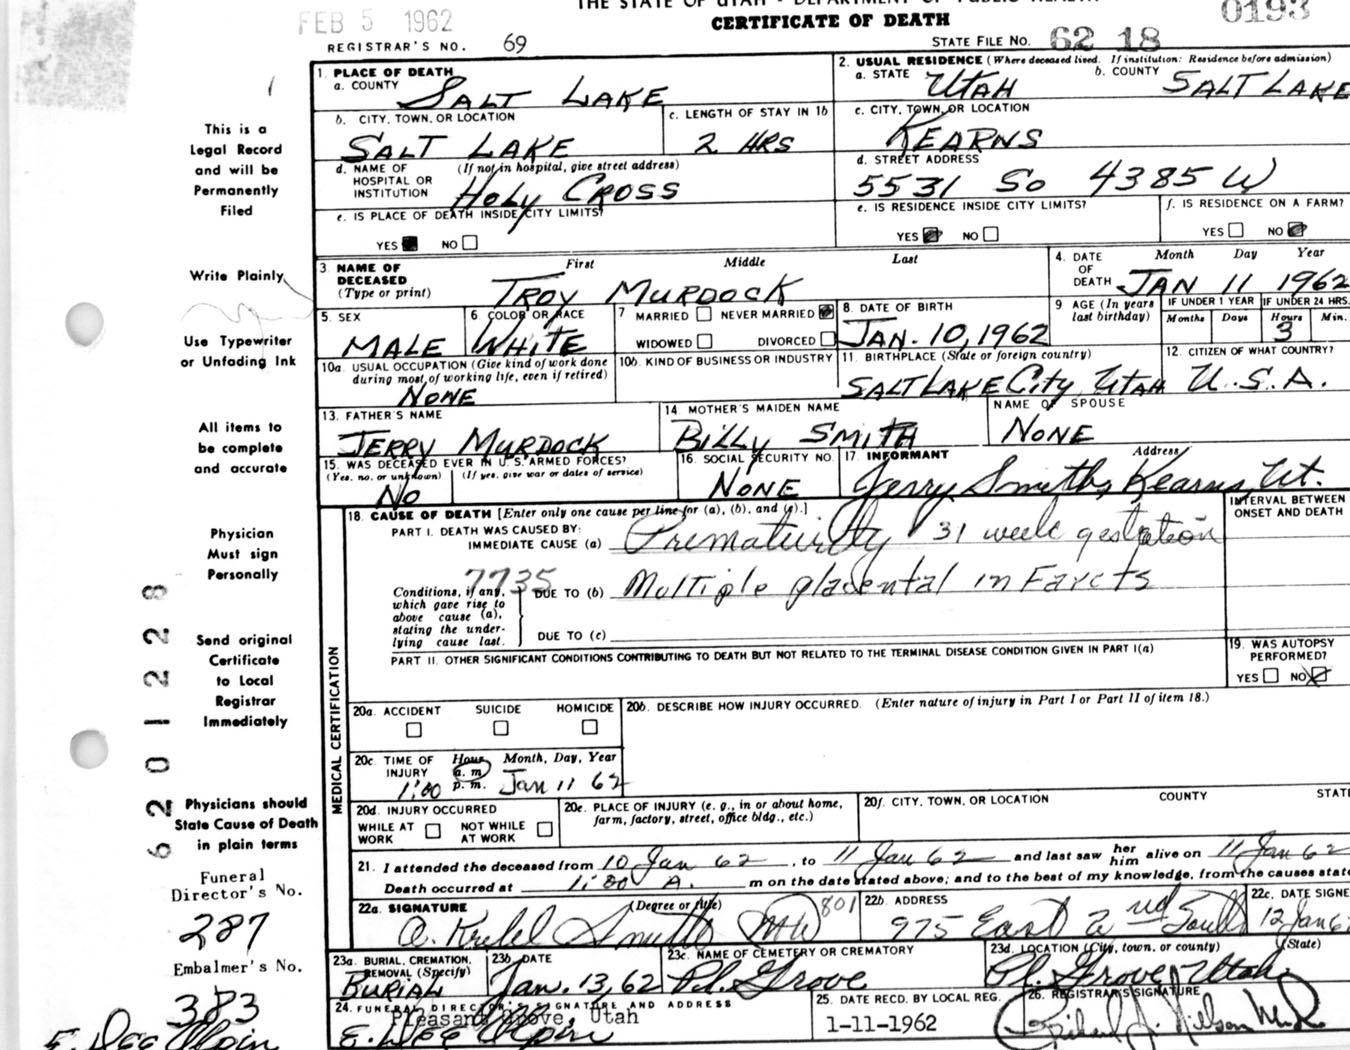 THE STATE OF UTAH - DEPARTMENT OF PUBLIC HEALTH
FEB 5 1962
CERTIFICATE OF DEATH
0193
REGISTRAR'S NO. 69
STATE FILE NO. 62 18
1. PLACE OF DEATH
a. COUNTY
SALT LAKE
2. USUAL RESIDENCE (Where deceased lived. If institution: Residence before admission)
a. STATE UTAH b. COUNTY SALT LAKE
b. CITY, TOWN, OR LOCATION
SALT LAKE
c. LENGTH OF STAY IN 1b
2 HRS
c. CITY, TOWN, OR LOCATION
KEARNS
d. NAME OF HOSPITAL OR INSTITUTION (If not in hospital, give street address)
HOLY CROSS
d. STREET ADDRESS
5531 So 4385 W
e. IS PLACE OF DEATH INSIDE CITY LIMITS?
YES NO
e. IS RESIDENCE INSIDE CITY LIMITS?
YES NO
f. IS RESIDENCE ON A FARM?
YES NO
3. NAME OF DECEASED (Type or print)
First Middle Last
TROY MURDOCK
4. DATE OF DEATH
Month Day Year
JAN 11 1962
5. SEX
MALE
6. COLOR OR RACE
WHITE
7 MARRIED NEVER MARRIED
WIDOWED DIVORCED
8. DATE OF BIRTH
JAN. 10, 1962
9 AGE (In years last birthday)
IF UNDER 1 YEAR
Months Days
IF UNDER 24 HRS.
Hours Min.
3
10a. USUAL OCCUPATION (Give kind of work done during most of working life, even if retired)
NONE
10b. KIND OF BUSINESS OR INDUSTRY
11. BIRTHPLACE (State or foreign country)
SALT LAKE City, UTAH
12. CITIZEN OF WHAT COUNTRY?
U.S.A.
13. FATHER'S NAME
JERRY MURDOCK
14 MOTHER'S MAIDEN NAME
BILLY SMITH
NAME OF SPOUSE
NONE
15. WAS DECEASED EVER IN U.S. ARMED FORCES?
(Yes, no, or unknown) (If yes, give war or dates of service)
NO
16. SOCIAL SECURITY NO.
NONE
17. INFORMANT Address
Jerry Smith, Kearns, Ut.
18. CAUSE OF DEATH [Enter only one cause per line for (a), (b), and (c).]
INTERVAL BETWEEN ONSET AND DEATH
PART I. DEATH WAS CAUSED BY:
IMMEDIATE CAUSE (a) Prematurity 31 week gestation
7735
Conditions, if any, which gave rise to above cause (a), stating the underlying cause last.
DUE TO (b) Multiple placental in Farcts
DUE TO (c)
PART II. OTHER SIGNIFICANT CONDITIONS CONTRIBUTING TO DEATH BUT NOT RELATED TO THE TERMINAL DISEASE CONDITION GIVEN IN PART I(a)
19. WAS AUTOPSY PERFORMED?
YES NO
MEDICAL CERTIFICATION
20a. ACCIDENT SUICIDE HOMICIDE
20b. DESCRIBE HOW INJURY OCCURRED. (Enter nature of injury in Part I or Part II of item 18.)
20c. TIME OF INJURY Hour Month, Day, Year
a. m.
p. m.
1:00 Jan 11 62
20d. INJURY OCCURRED
WHILE AT WORK NOT WHILE AT WORK
20e. PLACE OF INJURY (e. g., in or about home, farm, factory, street, office bldg., etc.)
20f. CITY, TOWN, OR LOCATION COUNTY STATE
21. I attended the deceased from 10 Jan 62, to 11 Jan 62 and last saw her him alive on 11 Jan 62
Death occurred at 1:00 A. m on the date stated above; and to the best of my knowledge, from the causes state
22a. SIGNATURE (Degree or title)
801
22b. ADDRESS
975 East 2nd South
22c. DATE SIGNE
12 Jan 62
23a. BURIAL, CREMATION, REMOVAL (Specify)
BURIAL
23b. DATE
Jan. 13, 62
23c. NAME OF CEMETERY OR CREMATORY
Pl. Grove
23d. LOCATION (City, town, or county) (State)
Pl. Grove, Utah.
24. FUNERAL DIRECTOR'S SIGNATURE AND ADDRESS
Pleasant Grove, Utah
E. Dee Olpin
25. DATE RECD. BY LOCAL REG.
1-11-1962
26. REGISTRAR'S SIGNATURE
This is a
Legal Record
and will be
Permanently
Filed
Write Plainly
Use Typewriter
or Unfading Ink
All items to
be complete
and accurate
Physician
Must sign
Personally
Send original
Certificate
to Local
Registrar
Immediately
Physicians should
State Cause of Death
in plain terms
Funeral
Director's No.
287
Embalmer's No.
383
E. Dee Olpin
6201228